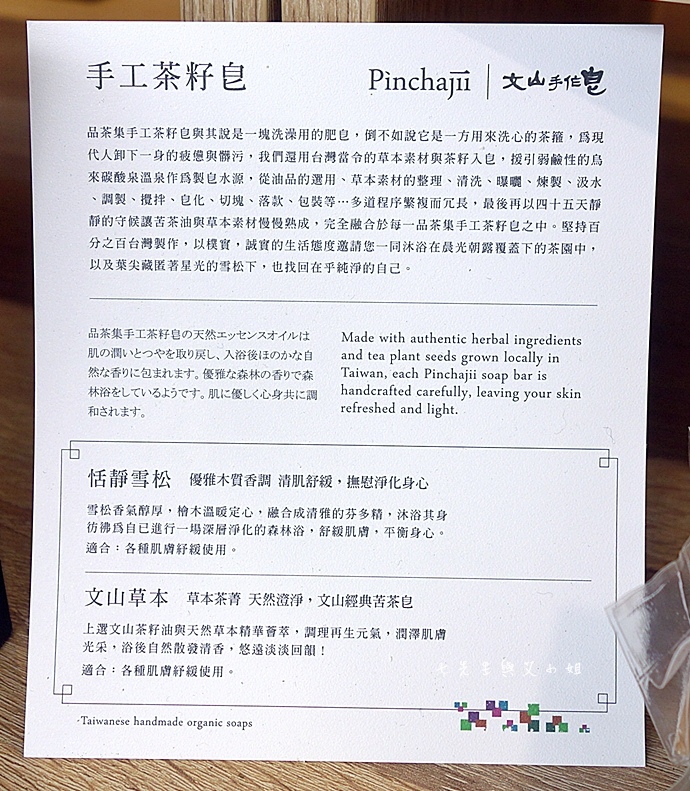 手工茶籽皂
Pinchajii
文山手作皂
品茶集手工茶籽皂與其說是一塊洗澡用的肥皂，倒不如說它是一方用來洗心的茶箍，爲現
代人卸下一身的疲憊與髒污，我們選用台灣當令的草本素材與茶籽入皂，援引弱鹼性的烏
來碳酸泉溫泉作爲製皂水源，從油品的選用、草本素材的整理、清洗、曝曬、煉製、汲水
、調製、攪拌、皂化、切塊、落款、包裝等…多道程序繁複而冗長，最後再以四十五天靜
靜的守候讓苦茶油與草本素材慢慢熟成，完全融合於每一品茶集手工茶籽皂之中。堅持百
分之百台灣製作，以樸實，誠實的生活態度邀請您一同沐浴在晨光朝露覆蓋下的茶園中，
以及葉尖藏匿著星光的雪松下，也找回在乎純淨的自己。
品茶集手工茶籽皂の天然エッセンスオイルは
肌の潤いとつやを取り戻し、入浴後ほのかな自
然な香りに包まれます。優雅な森林の香りで森
林浴をしているようです。肌に優しく心身共に調
和されます。
Made with authentic herbal ingredients
and tea plant seeds grown locally in
Taiwan, each Pinchajii soap bar is
handcrafted carefully, leaving your skin
refreshed and light.
恬靜雪松 優雅木質香調 清肌舒緩，撫慰淨化身心
雪松香氣醇厚，檜木溫暖定心，融合成清雅的芬多精，沐浴其身
彷彿爲自已進行一場深層淨化的森林浴，舒緩肌膚，平衡身心。
適合：各種肌膚紓緩使用。
文山草本 草本茶菁 天然澄淨，文山經典苦茶皂
上選文山茶籽油與天然草本精華薈萃，調理再生元氣，潤澤肌膚
光采，浴後自然散發清香，悠遠淡淡回韻！
適合：各種肌膚紓緩使用。
·Taiwanese handmade organic soaps